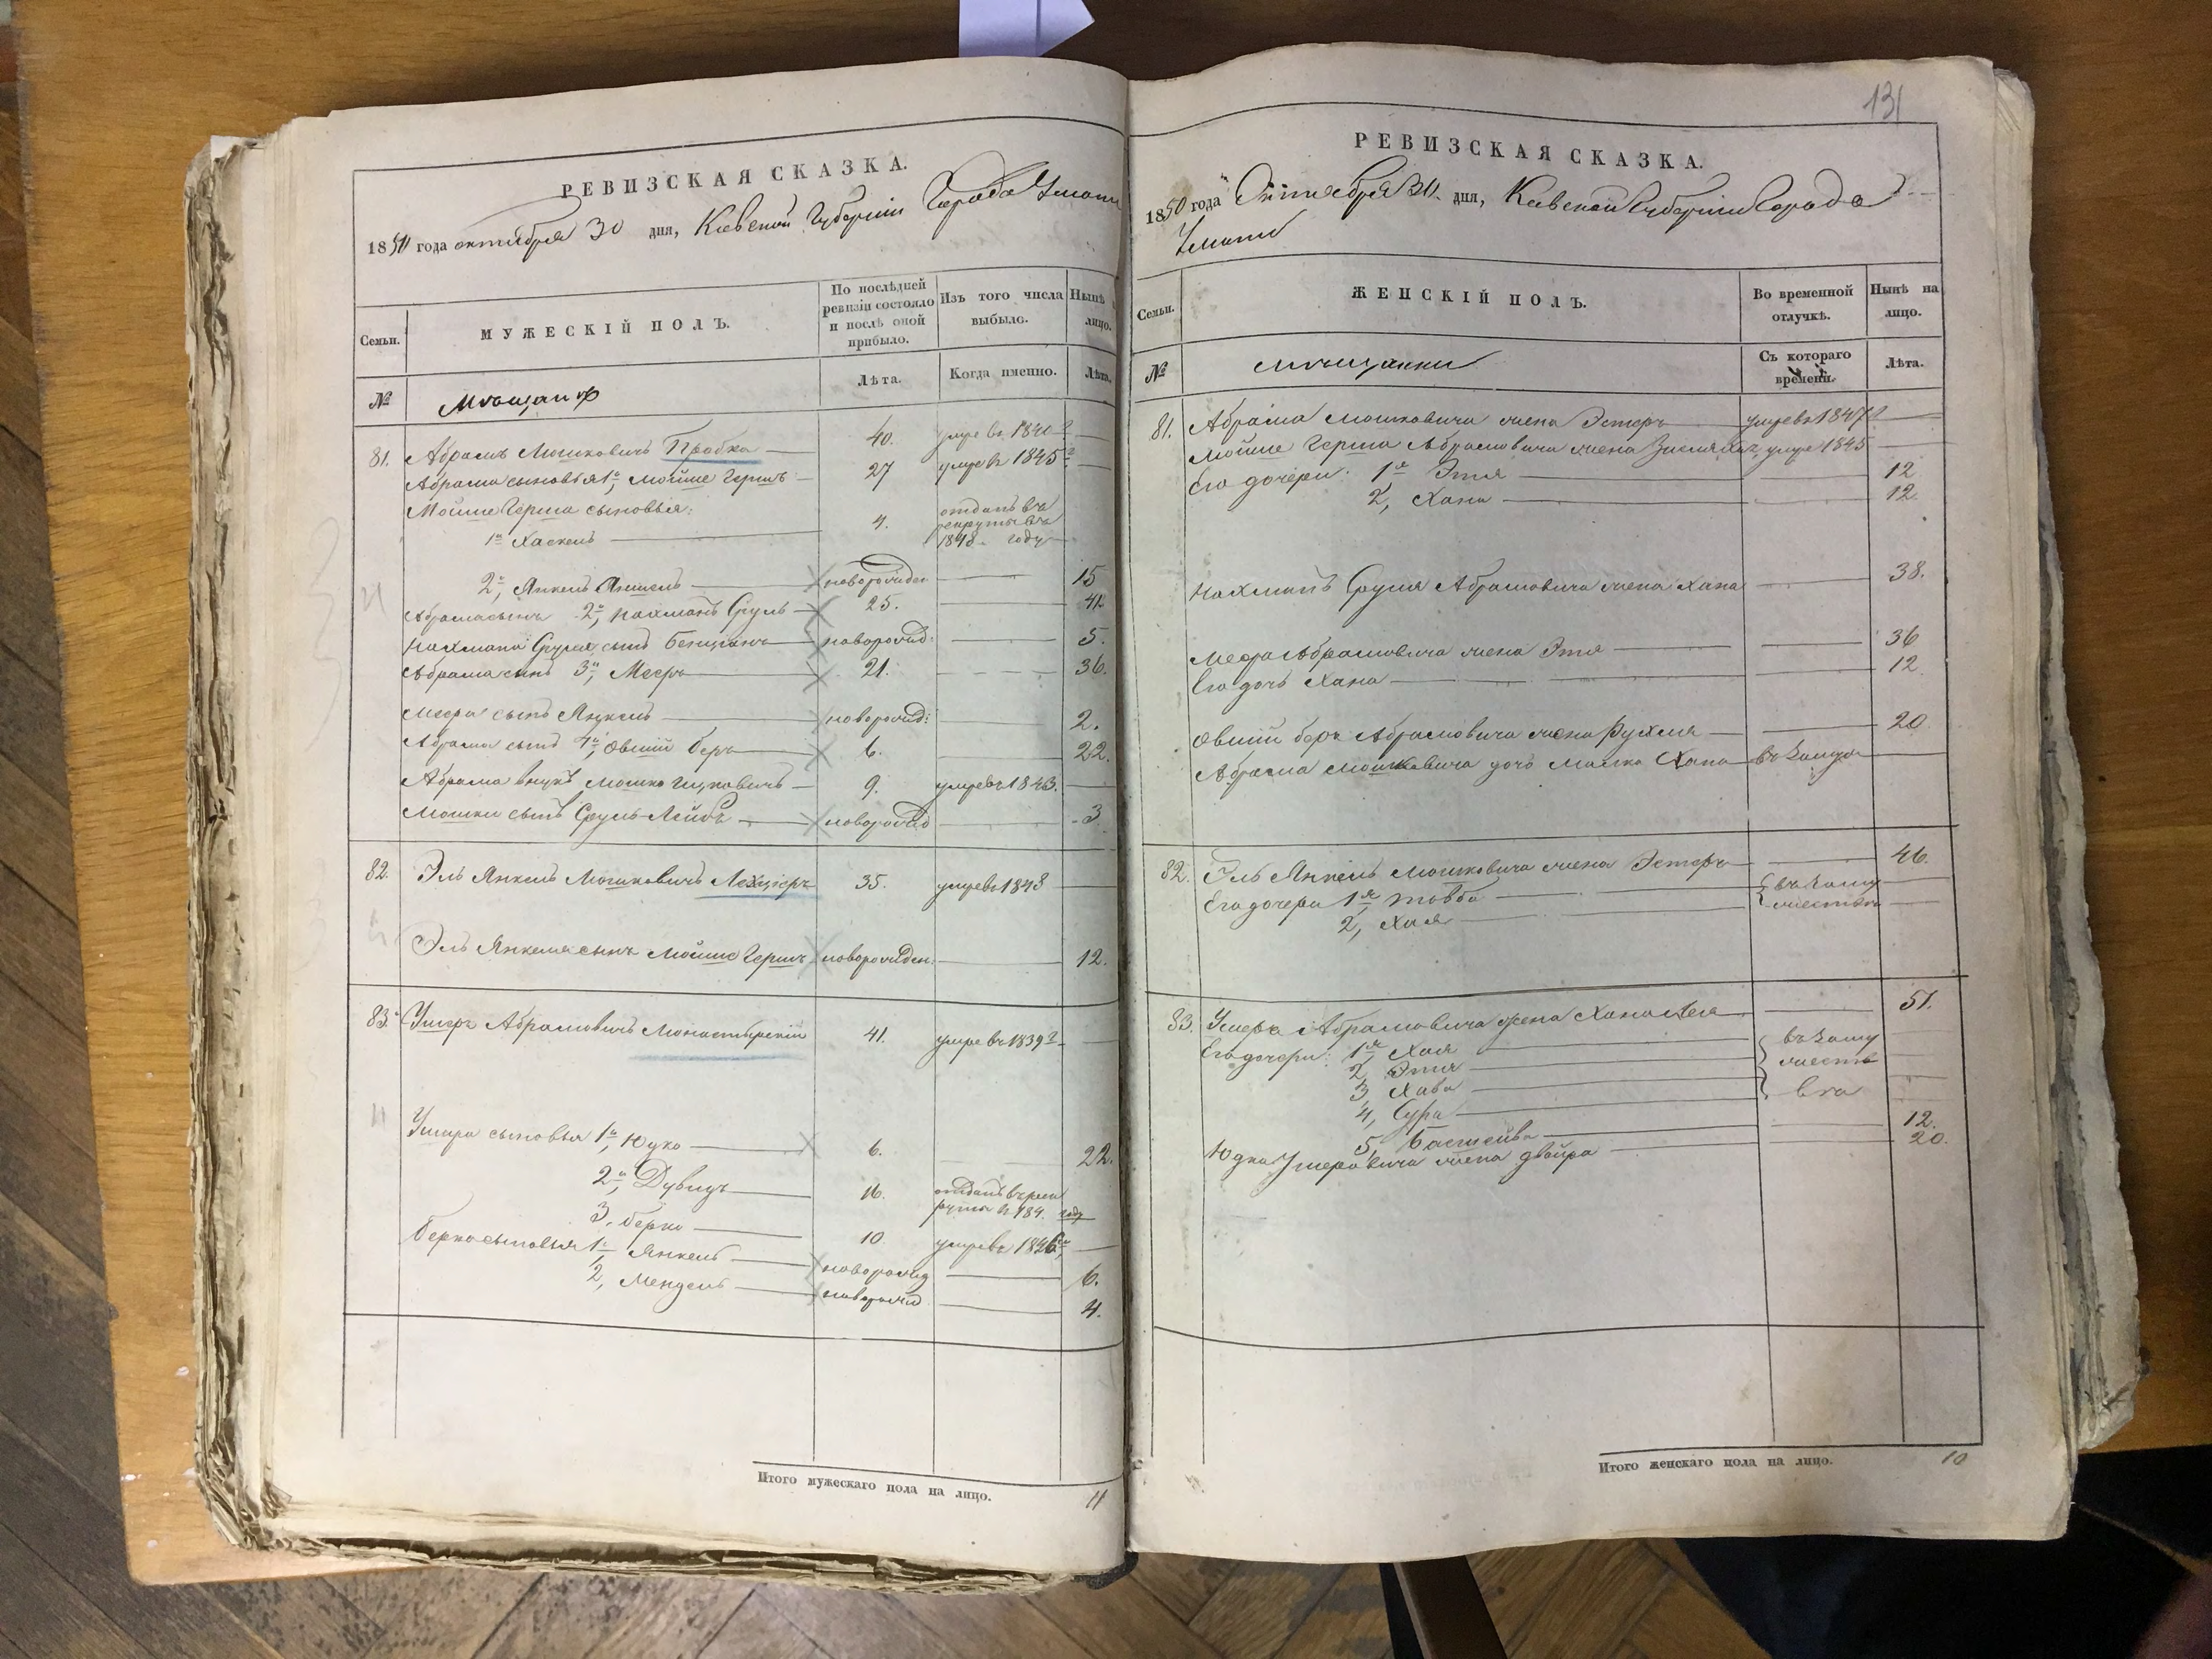 РЕВИЗСКАЯ СКАЗКА.
1850 года октября 30 дня, Киевской Губернии Города Умани
Семьи.
МУЖЕСКІЙ ПОЛЪ.
По послѣдней ревизіи состояло и послѣ оной прибыло.
Изъ того числа выбыло.
Нынѣ лицо.
№
Мѣщанъ
Лѣта.
Когда именно.
Лѣта.
81. Абрамъ Мошковичъ 40. умре въ 1840 г
Абрама сыновья 1й, Мойше Гершъ 27 умре въ 1845 г
Мойше Герша сыновья:
1й Хаскель 4. отданъ въ рекруты въ 1848 году
2й, Янкель Аншель новорожден 15
Абрама сынъ 2й, Нахманъ Сруль 25. 41
Нахмана Сруля сынъ Бенционъ новорожд: 5.
Абрама сынъ 3й, Мееръ 21. 36.
Меера сынъ Янкель новорожд: 2.
Абрама сынъ 4й, Овшій Беръ 6. 22.
Абрама внукъ Мошко Ицковичъ 9. умре въ 1843.
Мошки сынъ Сруль-Лейбъ новорожд 3
82. Эль Янкель Мошковичъ 35. умре въ 1848
Эль Янкеля сынъ Мойше Гершъ новорожден. 12.
83. Ушеръ Абрамовичъ Монастырскій 41. умре въ 1839 г
Ушера сыновья 1й, Юдко 6. 22.
2й, Дувидъ 16. отданъ въ рекруты въ 184. году
3, Берко 10 умре въ 1846
Берко сыновья 1й Янкель новорожд 6.
2, Мендель новорожд 4.
Итого мужескаго пола на лицо. 11
131
РЕВИЗСКАЯ СКАЗКА.
1850 года Октября 30. дня, Киевской Губернии Города
Умани
Семьи.
ЖЕНСКІЙ ПОЛЪ.
Во временной отлучкѣ.
Нынѣ на лицо.
№
мѣщанки
Съ котораго времени.
Лѣта.
81. Абрама Мошковича жена Эстеръ умре въ 1847 г
Мойше Герша Абрамовича жена умре 1845
Его дочери: 1я Этя 12
2, Хана 12.
Нахманъ Сруля Абрамовича жена Хана 38.
Меера Абрамовича жена Этя 36
Его дочь Хана 12
Овший Беръ Абрамовича жена Рухля 20
Абрама Мошковича дочь Малка Хана въ замуж
82. Эль Янкель Мошковича жена Эстеръ 46.
Его дочери 1я, Товба въ заму
2, Хая жествѣ
83. Ушера Абрамовича жена Хана Лея 51.
Его дочери: 1я, Хая въ заму
2, Этя жеств
3, Хава
4, Сура
5, Басшейва 12.
Юдка Ушеровича жена Двойра 20.
Итого женскаго пола на лицо. 10